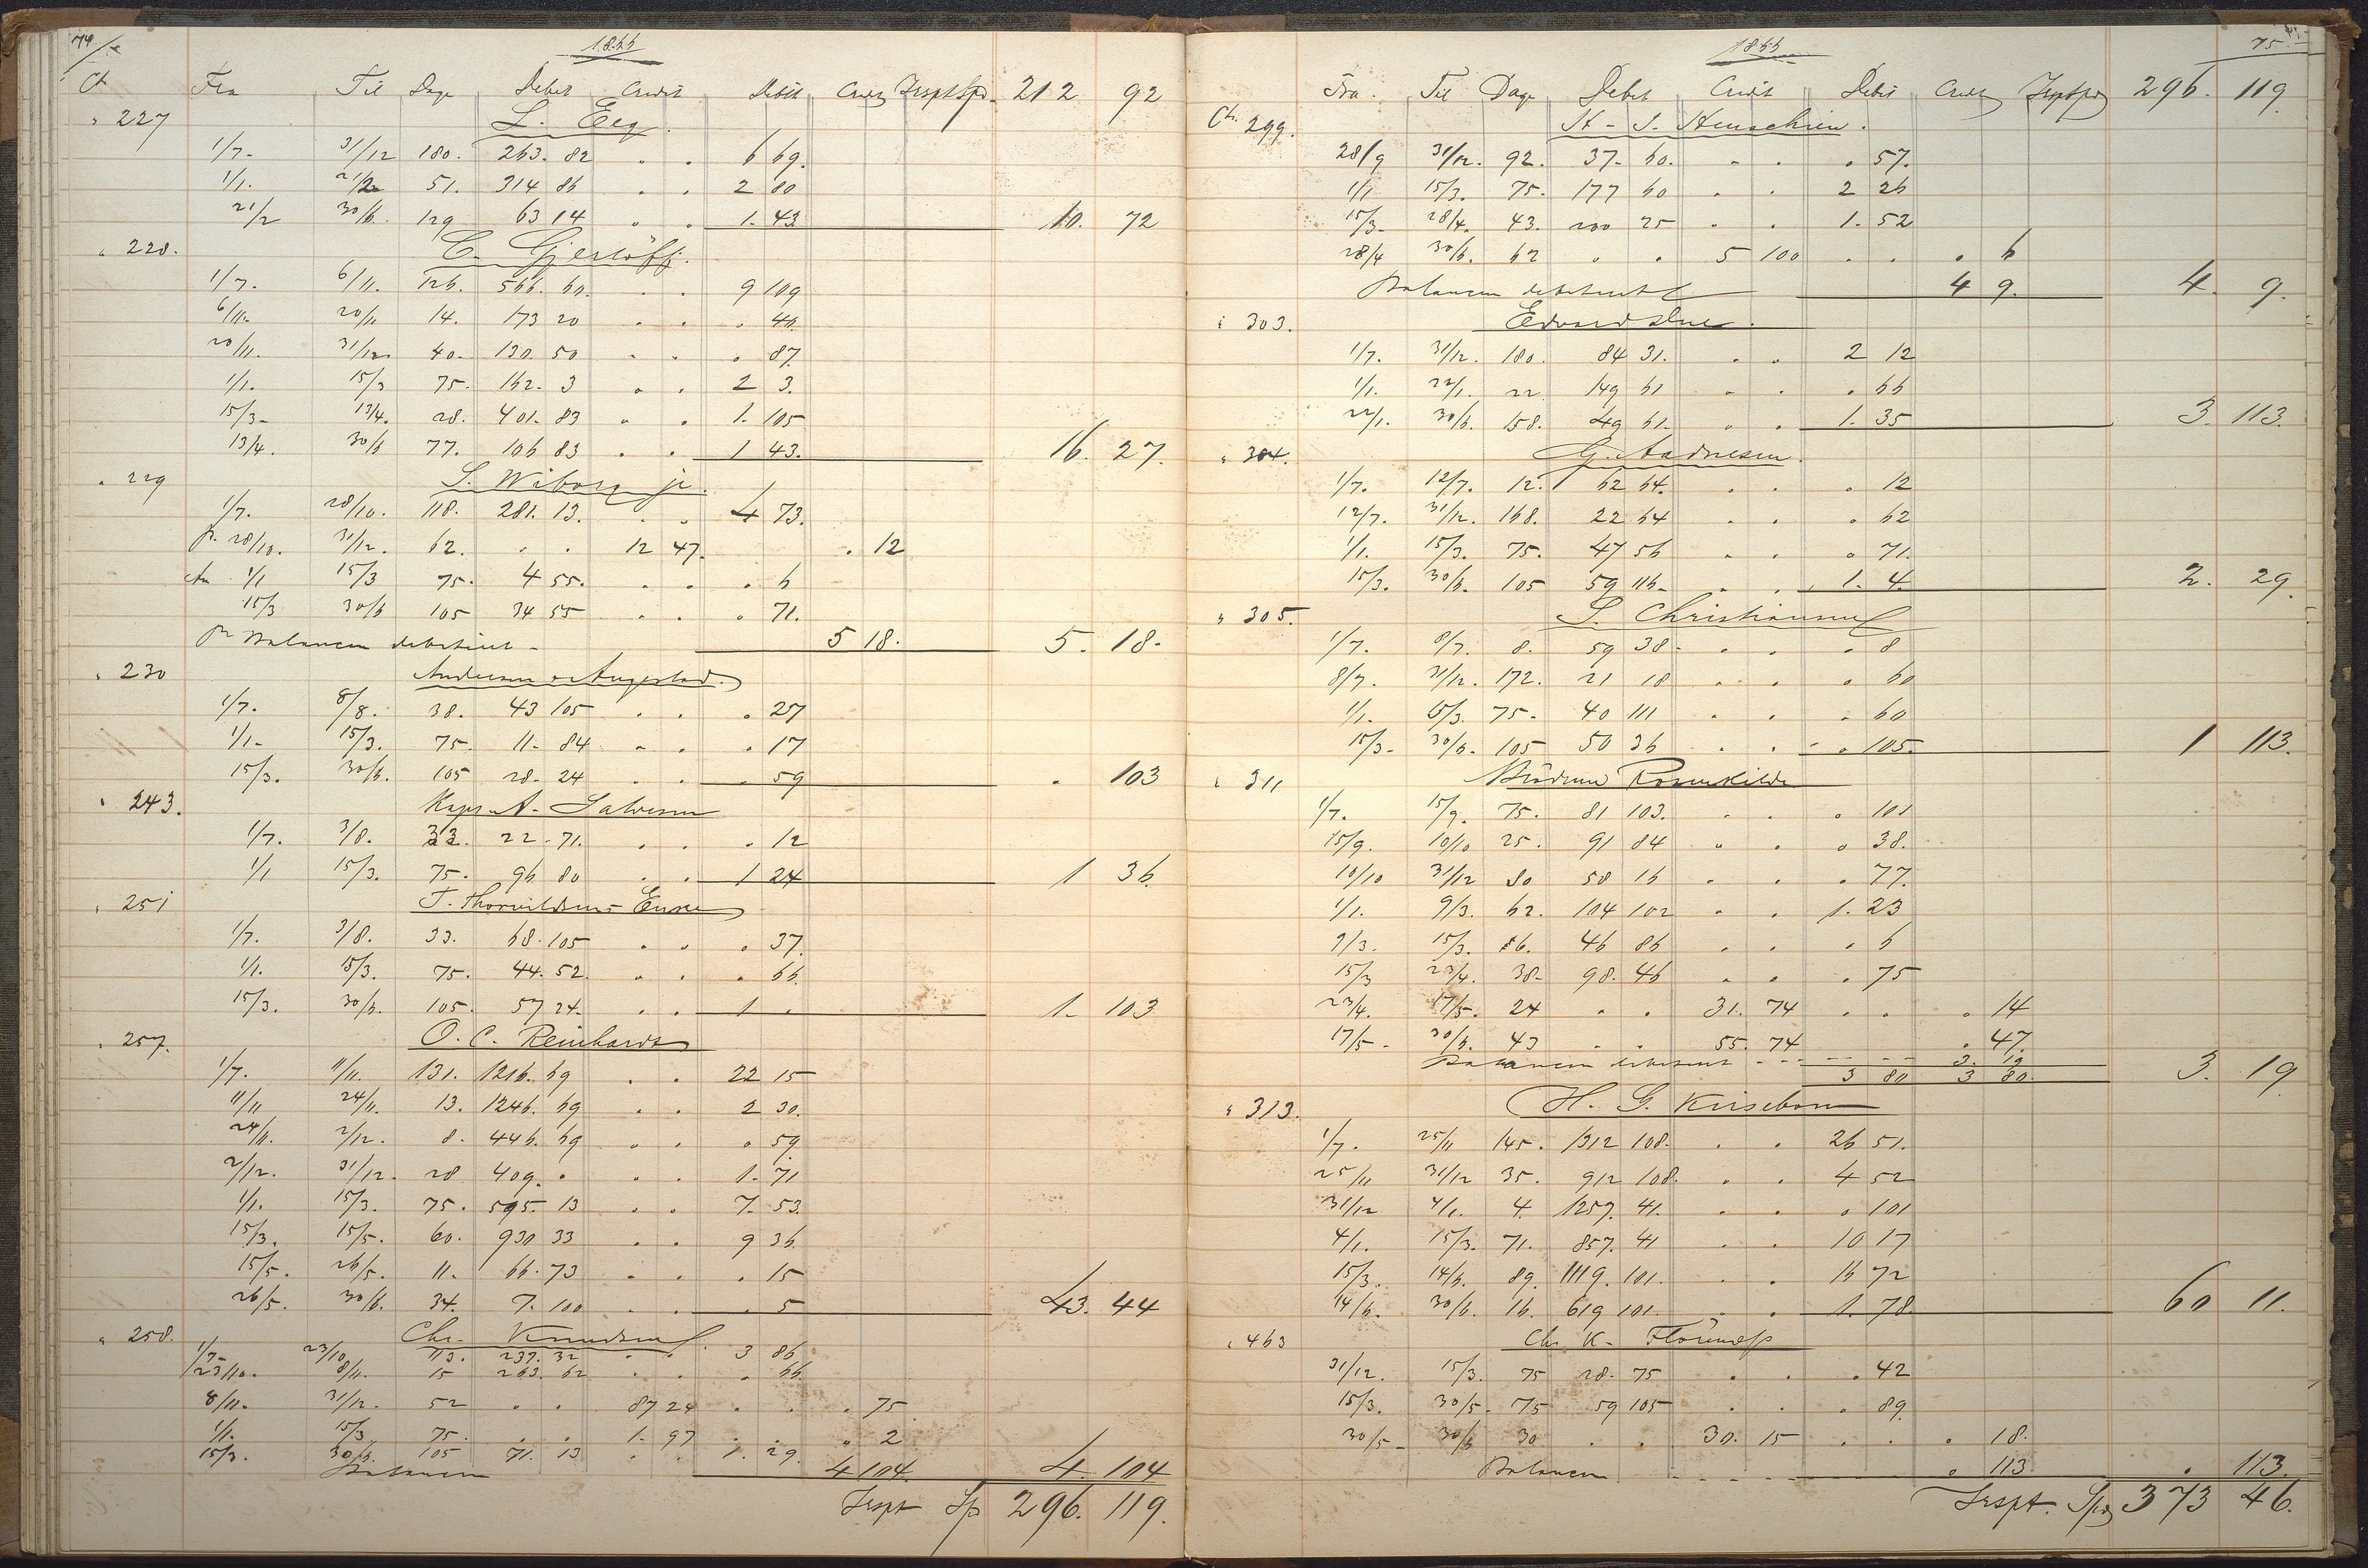 74
1866
Ct Fra Til Dage Debet Credit Debit Credit Trspt Spd. 212 92
" 227 L. Eeg.
1/7- 31/12 180. 263. 82 . . 6 69.
1/1. 21/2 51. 314 86 . . 2 80
21/2 30/6. 129 63 14 . . 1. 43. 10. 72
" 228. C. Gjerløff.
1/7. 6/11. 126. 566. 60. . . 9 109
6/11. 20/11 14. 173 20 . . . 40.
20/11. 31/12. 40. 130. 50 . . . 87.
1/1. 15/3 75. 162. 3 . . 2 3.
15/3- 13/4. 28. 401. 83 . . 1. 105
13/4. 30/6 77. 106 83 . . 1 43. 16. 27.
" 229 S. Wiborg jr.
1/7. 28/10. 118. 281. 13. . . 4 73.
pr. 28/10. 31/12. 62. . . 12 47. . 12
1/1 15/3 75. 4 55. . . . 6
15/3 30/6 105 34 55 . . . 71.
pr Balancen debeteret - 5 18. 5. 18.
" 230 Andersen & Augestad
1/7. 8/8. 38. 43 105 . . . 27
1/1- 15/3. 75. 11- 84 . . . 17
15/3. 30/6. 105 28- 24 . . . 59 . 103
" 243. Kapt. A. Salvesen
1/7. 3/8. 33. 22. 71. . . . 12
1/1 15/3. 75. 96 80 . . 1 24 1 36.
" 251 T. Thorvildsens Enke
1/7. 3/8. 33. 68. 105 . . . 37.
1/1. 15/3. 75. 44. 52. . . . 66.
15/3. 30/6. 105. 57 24. . . 1 . 1. 103
" 257. O. C. Reinhardt
1/7. 11/11. 131. 1216. 69 . . 22 15
11/11 24/11. 13. 1246. 69 . . 2 30.
24/11. 2/12. 8. 446. 69 . . . 59.
2/12. 31/12. 28 409. . . . 1. 71
1/1. 15/3. 75. 595. 13 . . 7. 53.
15/3. 15/5. 60. 930 33 . . 9 36.
15/5. 26/5. 11. 66. 73 . . . 15
26/5. 30/6. 34. 7. 100 . . . 5 43. 44
" 258. Chr. Knudsen
1/7- 23/10 113. 237. 32 . . 3 86
23/10. 8/11. 15 263. 62 . . . 66.
8/11. 31/12. 52 . . 87 24 . . . 75.
1/1. 15/3. 75. . . 1. 97 . . . 2
15/3. 30/6. 105 71. 13 . . 1. 29.
Balancen 4 104. 4. 104
Trspt Sp 296. 119.
75
1866
Fra. Til Dage Debet Credit Debit Credit Trspt Spd 296. 119.
Ct. 299.
28/9 31/12. 92. 37- 60. . . . 57.
1/1 15/3. 75. 177 60 . . 2 26
15/3- 28/4. 43. 200 25 . . 1. 52
28/4 30/6. 62 . . 5 100 . . . 6
Balancen debeteret 4 9. 4. 9.
" 303. Edvard Due.
1/7. 31/12. 180. 84 31. . . 2 12
1/1. 22/1. 22 149 61 . . . 66
22/1. 30/6. 158. 49 61. . . 1. 35 3. 113.
" 304. G. Aadnesen.
1/7. 12/7. 12. 62 64. . . . 12
12/7. 31/12. 168. 22 64 . . . 62
1/1. 15/3. 75. 47 56 . . . 71.
15/3. 30/6. 105 59 116 . . 1. 4. 2. 29.
" 305. S. Christiansen
1/7. 8/7. 8. 59 38. . . . 8
8/7. 31/12. 172. 21 18 . . . 60
1/1. 15/3. 75. 40 111 . . . 60
15/3- 30/6. 105 50 36 . . . 105. 1 113.
" 311 Brødrene Rosenkilde
1/7. 15/9. 75. 81 103. . . . 101
15/9. 10/10 25. 91 84 . . . 38.
10/10 31/12 80 58 16 . . . 77.
1/1. 9/3. 62. 104 102 . . 1. 23
9/3. 15/3. 6. 46 86 . . . 6
15/3 23/4. 38- 98. 46 . . . 75
23/4. 17/5. 24 . . 31. 74 . . . 14
17/5- 30/6. 43 . . 55. 74 . 47.
Balancen debeteret 3. 19
3 80 3 80. 3. 19
" 313. H. G. Kiisebom
1/7. 25/11 145. 1312 108. . . 26 51.
25/11 31/12 35. 912 108. . . 4 52
31/12 4/1. 4. 1257. 41. . . . 101
4/1. 15/3. 71. 857. 41 . . 10 17
15/3. 14/6. 89. 1119. 101. . . 16 72
14/6. 30/6. 16. 619 101. . . 1. 78. 60 11.
" 463 Chr K-
31/12. 15/3. 75 28. 75 . . . 42
15/3. 30/5. 75 59 105 . . . 89.
30/5- 30/6 30 . . 30. 15 . . . 18.
Balancen . 113. . 113.
Trspt. Spd 373 46.